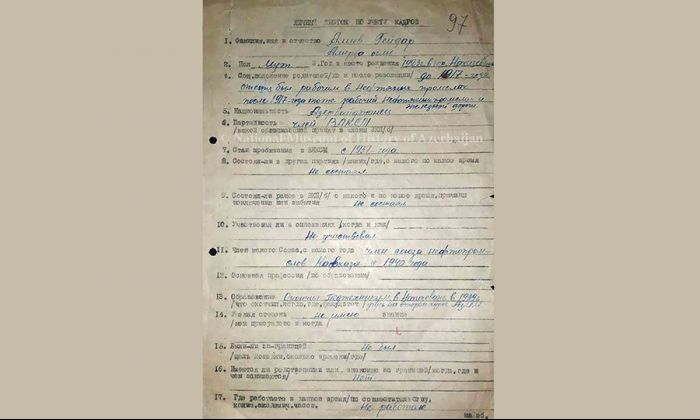 ЛИЧНЫЙ ЛИСТОК ПО УЧЕТУ КАДРОВ
97
1. Фамилия, имя и отчество Алиев Гейдар
Алирза оглы
2. Пол Муж 3. Год и место рождения 1923г. в гор. Нахичевань
4. Соц. положение родителей /до и после революции/ до 1917-года
отец был рабочим в нефтяных промыслах
после 1917-года тоже рабочий нефтяных промыслах и
железной дороги.
5. Национальность Азербайджанец
6. Партийность член ВЛКСМ
/какой организацией принят в члены ВКП/б/
© National Museum of History of Azerbaijan
7. Стаж пребывания в ВЛКСМ с 1937-года
8. Состоял-ли в других партиях /каких/где, с какого по какое время
Не состоял
9. Состоял-ли ранее в ВКП/б/ с какого и по какое время, причины
исключения или выбытия Не состоял
10. Участвовал ли в оппозициях /когда и как/
Не участвовал
11. Член какого Союза, с какого года член союза нефтепром-
слов Кавказа с 1940 года
12. Основная профессия /по образованию/
13. Образование Окончил Педтехникум в Нахичевань в 1939г.
/что окончил, когда, где, факультет/ учусь на втором курсе
14. Ученая степень Не имею звание
/кем присуждено и когда/
15. Были-ли за-границей Не был
/цель поездки, сколько времени/где/
16. Имеются ли родственники или знакомые за границей/когда, где и
чем занимаются/ Нет.
17. Где работаете в данное время/по совместительству,
колич. еженедел. часов. Не работаю